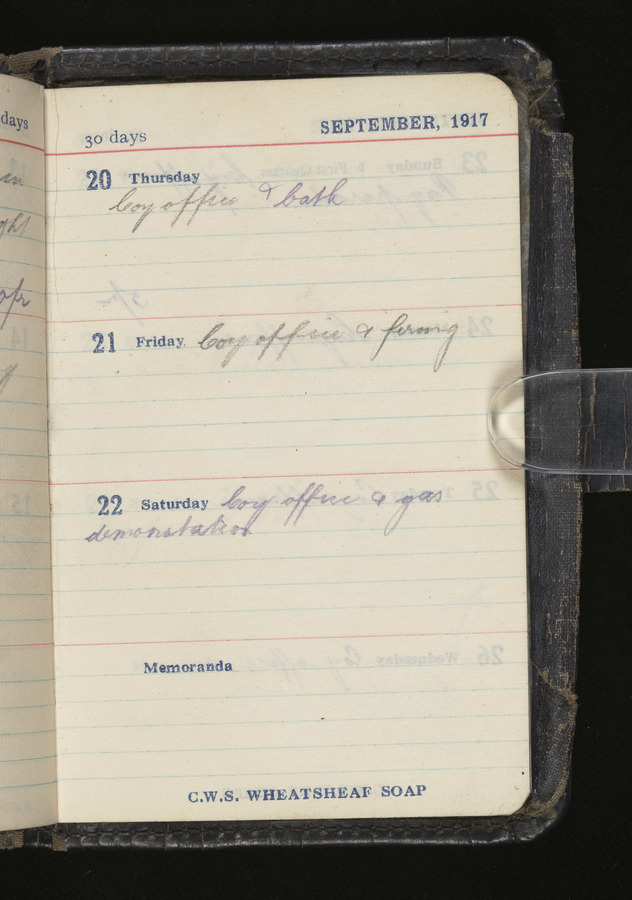 days
30 days
SEPTEMBER, 1917
20 Thursday
Coy office & bath
21 Friday. Coy office & firing
22 Saturday Coy office & gas
demonstation
Memoranda
C.W.S. WHEATSHEAF SOAP